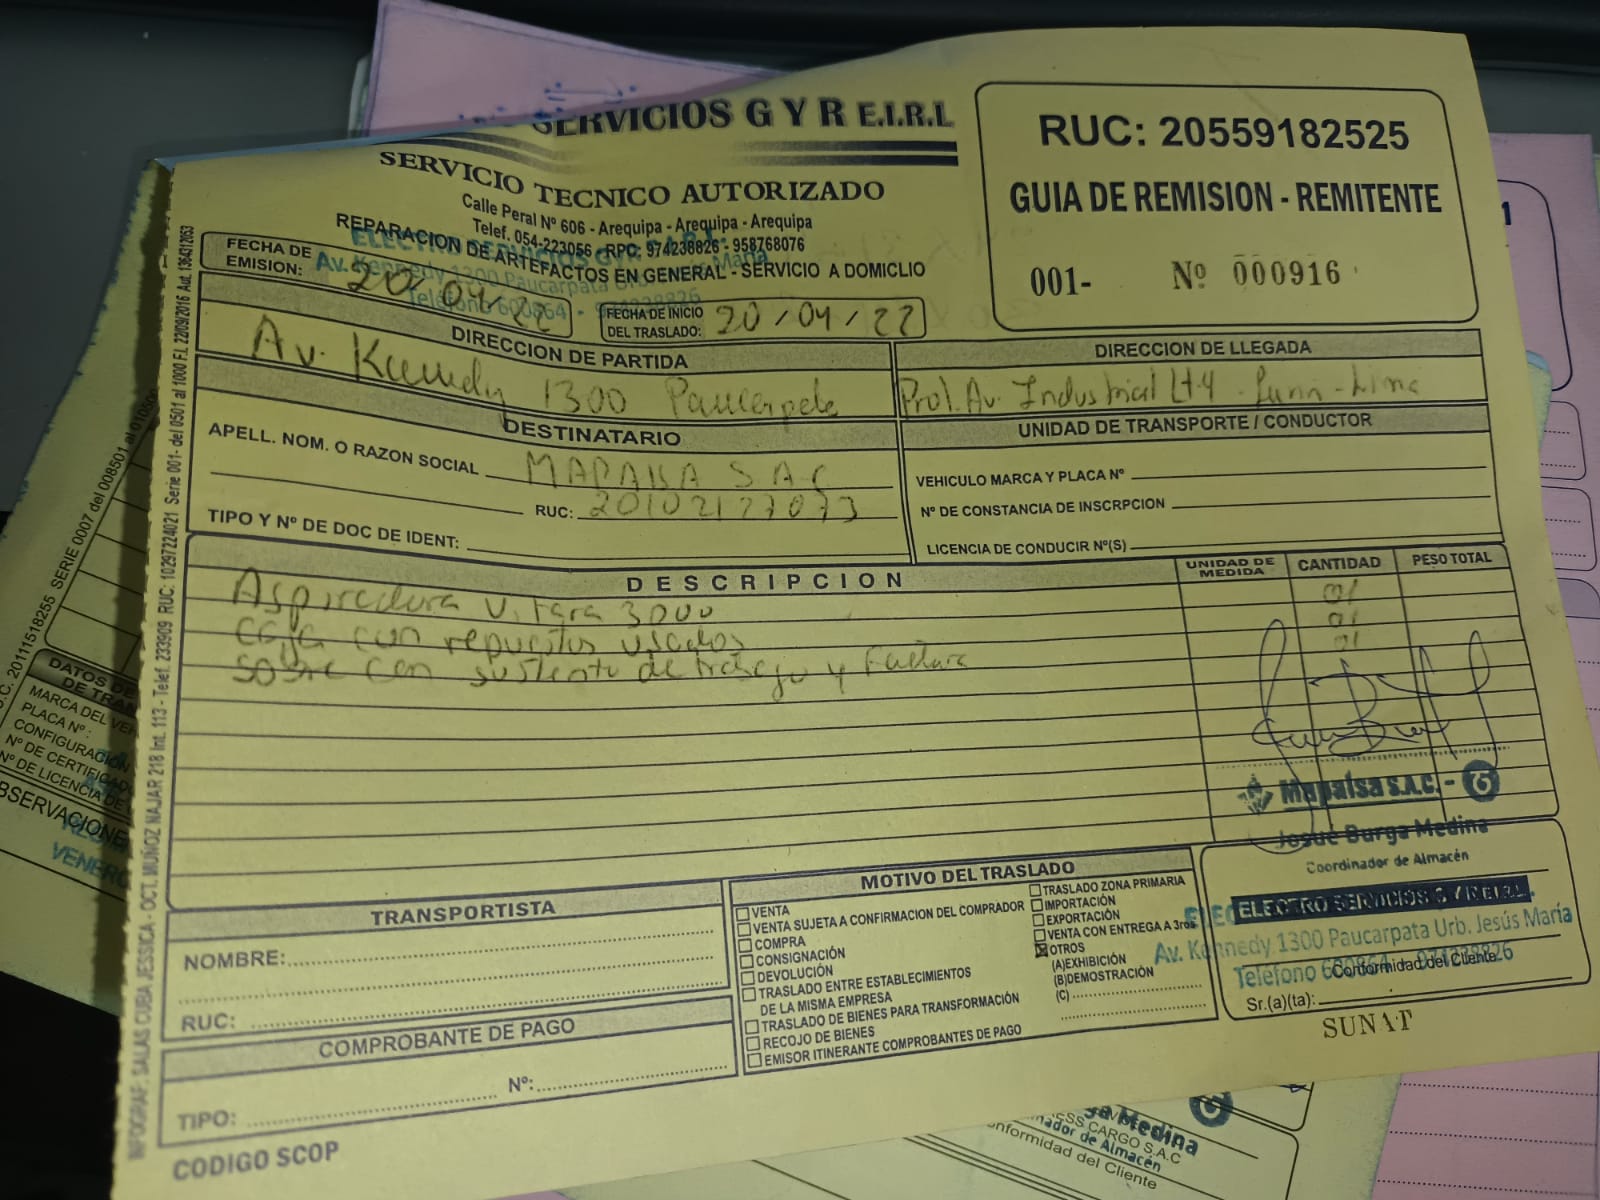 SERVICIOS G Y R E.I.R.L
SERVICIO TECNICO AUTORIZADO
Calle Peral Nº 606 - Arequipa - Arequipa - Arequipa
Telef. 054-223056 - RPC: 974238826 - 958768076
REPARACION DE ARTEFACTOS EN GENERAL - SERVICIO A DOMICLIO
RUC: 20559182525
GUIA DE REMISION - REMITENTE
001- Nº 000916
FECHA DE EMISION: 20/04/22
FECHA DE INICIO DEL TRASLADO: 20/04/22
DIRECCION DE PARTIDA
Av. Kennedy 1300 Paucarpata
DIRECCION DE LLEGADA
Prol. Av. Industrial Lt 4 - Lurin - Lima
DESTINATARIO
APELL. NOM. O RAZON SOCIAL MAPALSA S.A.C
RUC: 20102127073
TIPO Y Nº DE DOC DE IDENT:
UNIDAD DE TRANSPORTE / CONDUCTOR
VEHICULO MARCA Y PLACA Nº
Nº DE CONSTANCIA DE INSCRPCION
LICENCIA DE CONDUCIR Nº(S)
DESCRIPCION UNIDAD DE MEDIDA CANTIDAD PESO TOTAL
Aspiradora Vitara 3000 01
Caja con repuestos usados 01
sobre con sustento de trabajo y factura 01
Mapalsa S.A.C. - 6
Josué Burga Medina
Coordinador de Almacén
TRANSPORTISTA
NOMBRE:
RUC:
COMPROBANTE DE PAGO
TIPO: Nº:
CODIGO SCOP
MOTIVO DEL TRASLADO
VENTA
VENTA SUJETA A CONFIRMACION DEL COMPRADOR
COMPRA
CONSIGNACIÓN
DEVOLUCIÓN
TRASLADO ENTRE ESTABLECIMIENTOS
DE LA MISMA EMPRESA
TRASLADO DE BIENES PARA TRANSFORMACIÓN
RECOJO DE BIENES
EMISOR ITINERANTE COMPROBANTES DE PAGO
TRASLADO ZONA PRIMARIA
IMPORTACIÓN
EXPORTACIÓN
VENTA CON ENTREGA A 3ros
OTROS
(A)EXHIBICIÓN
(B)DEMOSTRACIÓN
(C)
ELECTRO SERVICIOS G Y R E.I.R.L.
Av. Kennedy 1300 Paucarpata Urb. Jesús María
Teléfono 600864 - 974238826
Conformidad del Cliente
Sr.(a)(ta):
SUNAT
INFOGRAF: SALAS CUBA JESSICA - OCT. MUÑOZ NAJAR 218 Int. 113 - Telef. 233909 RUC: 10297224021 Serie 001- del 0501 al 1000 F.I. 22/09/2016 Aut. 1364312053
20111518255 SERIE 0007 del 008501 al
DATOS DE
MARCA DEL
PLACA Nº:
CONFIGURACIÓN
Nº DE CERTIFICADO
Nº DE LICENCIA DE
OBSERVACIONE
Medina
CARGO S.A.C
de Almacén
onformidad del Cliente